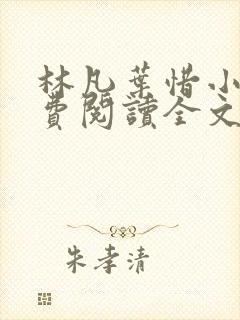 林凡葉惜小
費閱讀全文
朱孝清